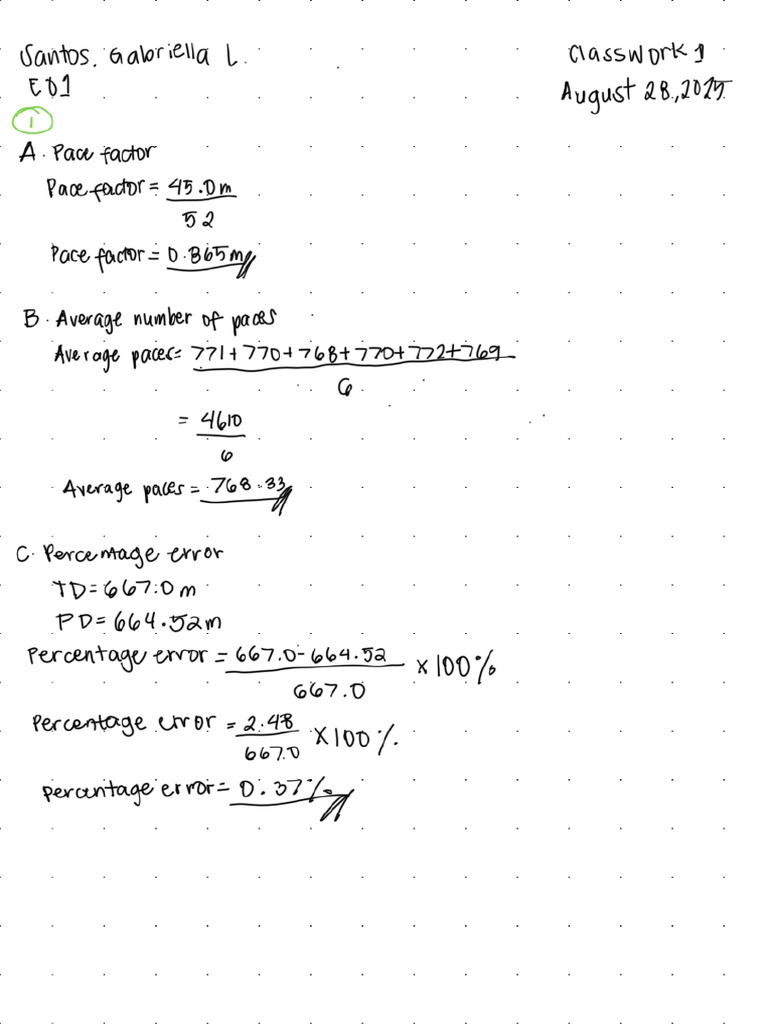 Santos, Gabriella L.
Classwork 1
E01
August 28, 2025
1
A. Pace factor
Pace factor = 45.0m
52
Pace factor = 0.865m
B. Average number of paces
Average paces = 771+770+768+770+772+769
6
= 4610
6
Average paces = 768.33
C. Percentage error
TD = 667.0 m
PD = 664.52m
Percentage error = 667.0 - 664.52 × 100%
667.0
Percentage error = 2.48 × 100%.
667.0
percentage error = 0.37%